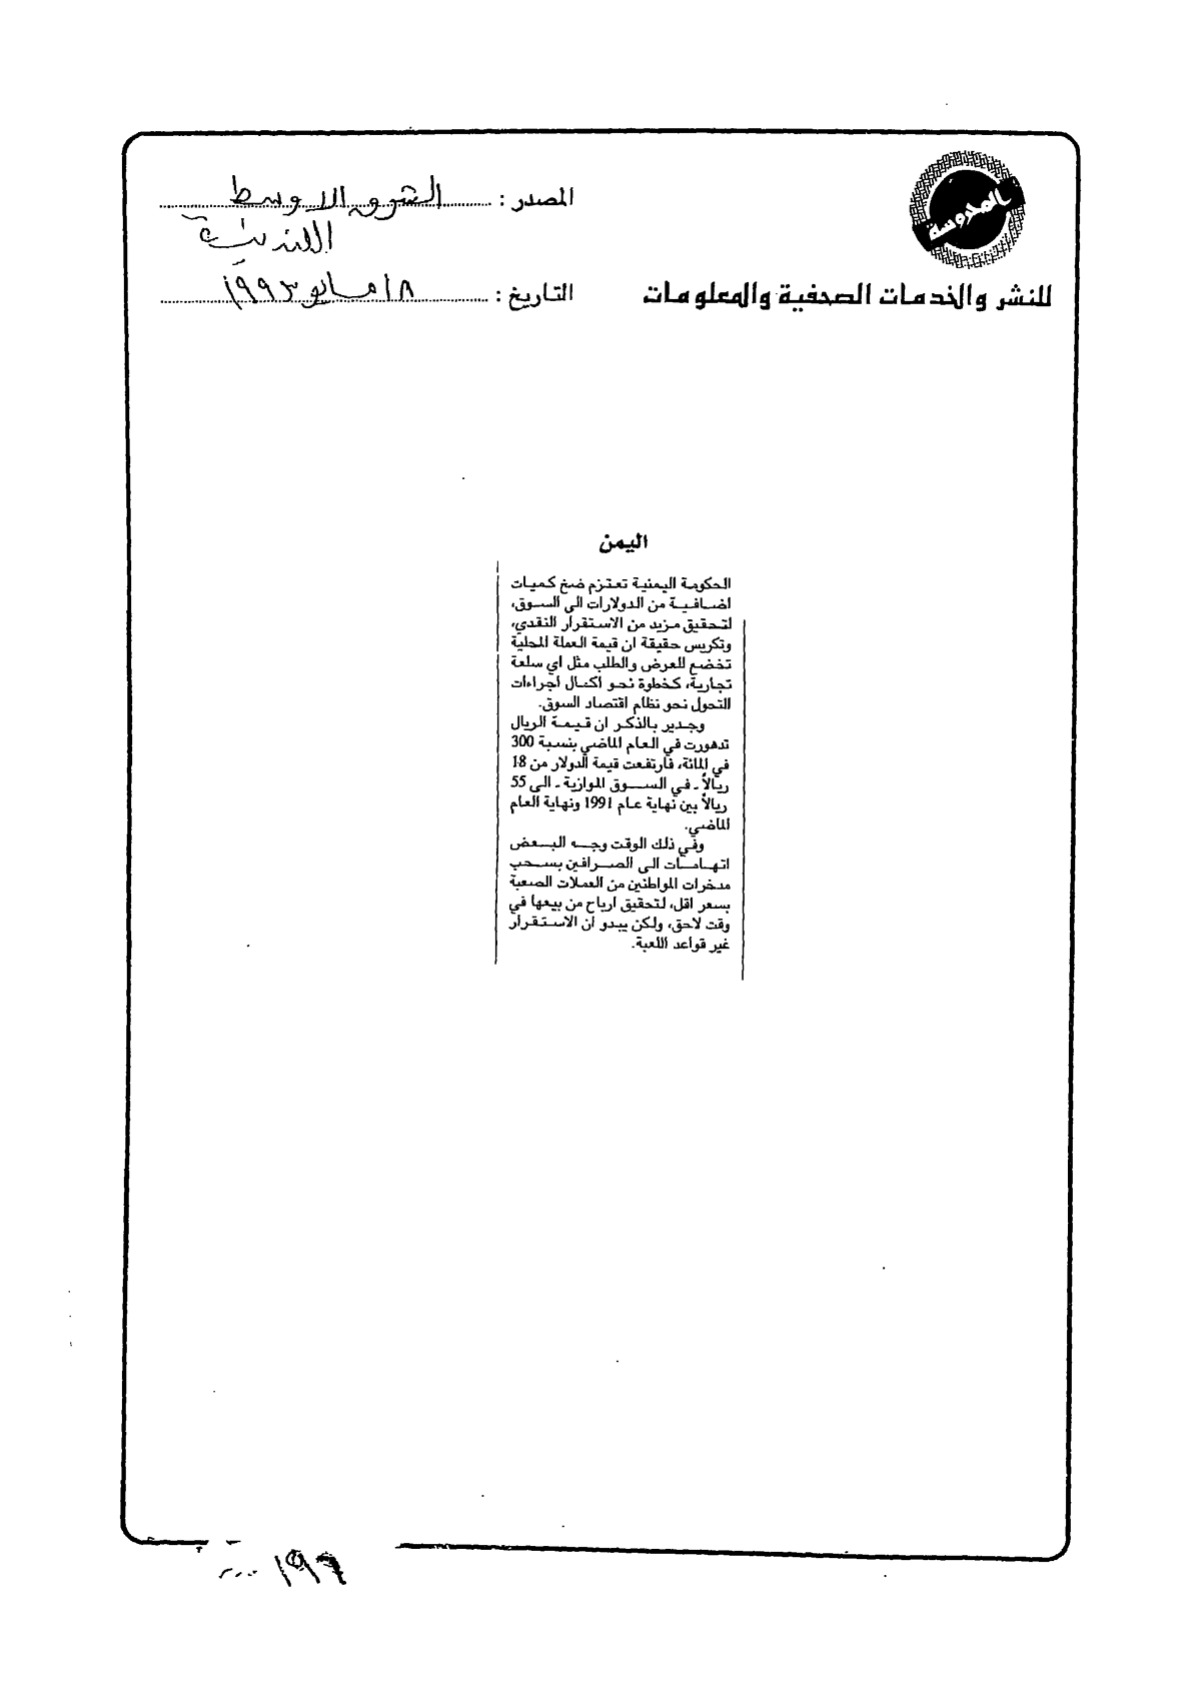 بالمحروسة
للنشر والخدمات الصحفية والمعلومات
المصدر : الشرق الاوسط
اللندنية
التاريخ : ١٨ مايو ١٩٩٣
اليمن
الحكومة اليمنية تعتزم ضخ كميات
اضافية من الدولارات الى السوق،
لتحقيق مزيد من الاستقرار النقدي،
وتكريس حقيقة ان قيمة العملة المحلية
تخضع للعرض والطلب مثل اي سلعة
تجارية، كخطوة نحو اكمال اجراءات
التحول نحو نظام اقتصاد السوق.
وجدير بالذكر ان قيمة الريال
تدهورت في العام الماضي بنسبة 300
في المائة، فارتفعت قيمة الدولار من 18
ريالاً ـ في السوق الموازية ـ الى 55
ريالاً بين نهاية عام 1991 ونهاية العام
الماضي.
وفي ذلك الوقت وجه البعض
اتهامات الى الصرافين بسحب
مدخرات المواطنين من العملات الصعبة
بسعر اقل، لتحقيق ارباح من بيعها في
وقت لاحق، ولكن يبدو ان الاستقرار
غير قواعد اللعبة.